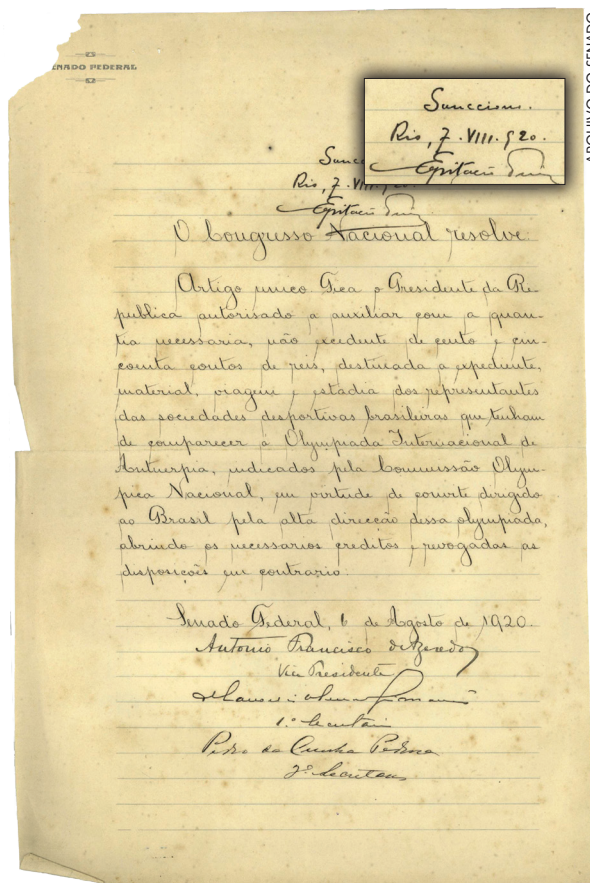 SENADO FEDERAL
ARQUIVO DO SENADO
Sancciono.
Rio, 7. VIII. 920.
Epitacio
Rio, 7. VIII. 920.
Epitacio
O Congresso Nacional resolve:
Artigo unico. Fica o Presidente da Re-
publica autorisado a auxiliar com a quan-
tia necessaria, não excedente de cento e cin-
coenta contos de reis, destinada a expediente,
material, viagem e estadia dos representantes
das sociedades desportivas brasileiras que tenham
de comparecer á Olympiada Internacional de
Antuerpia, indicados pela Commissão Olym-
pica Nacional, em virtude de convite dirigido
ao Brasil pela alta direcção dessa olympiada,
abrindo os necessarios creditos e revogadas as
disposições em contrario.
Senado Federal, 6 de Agosto de 1920.
Antonio Francisco de Azeredo
Vice Presidente
1.º Secretario
Pedro da Cunha Pedrosa
2.º Secretario